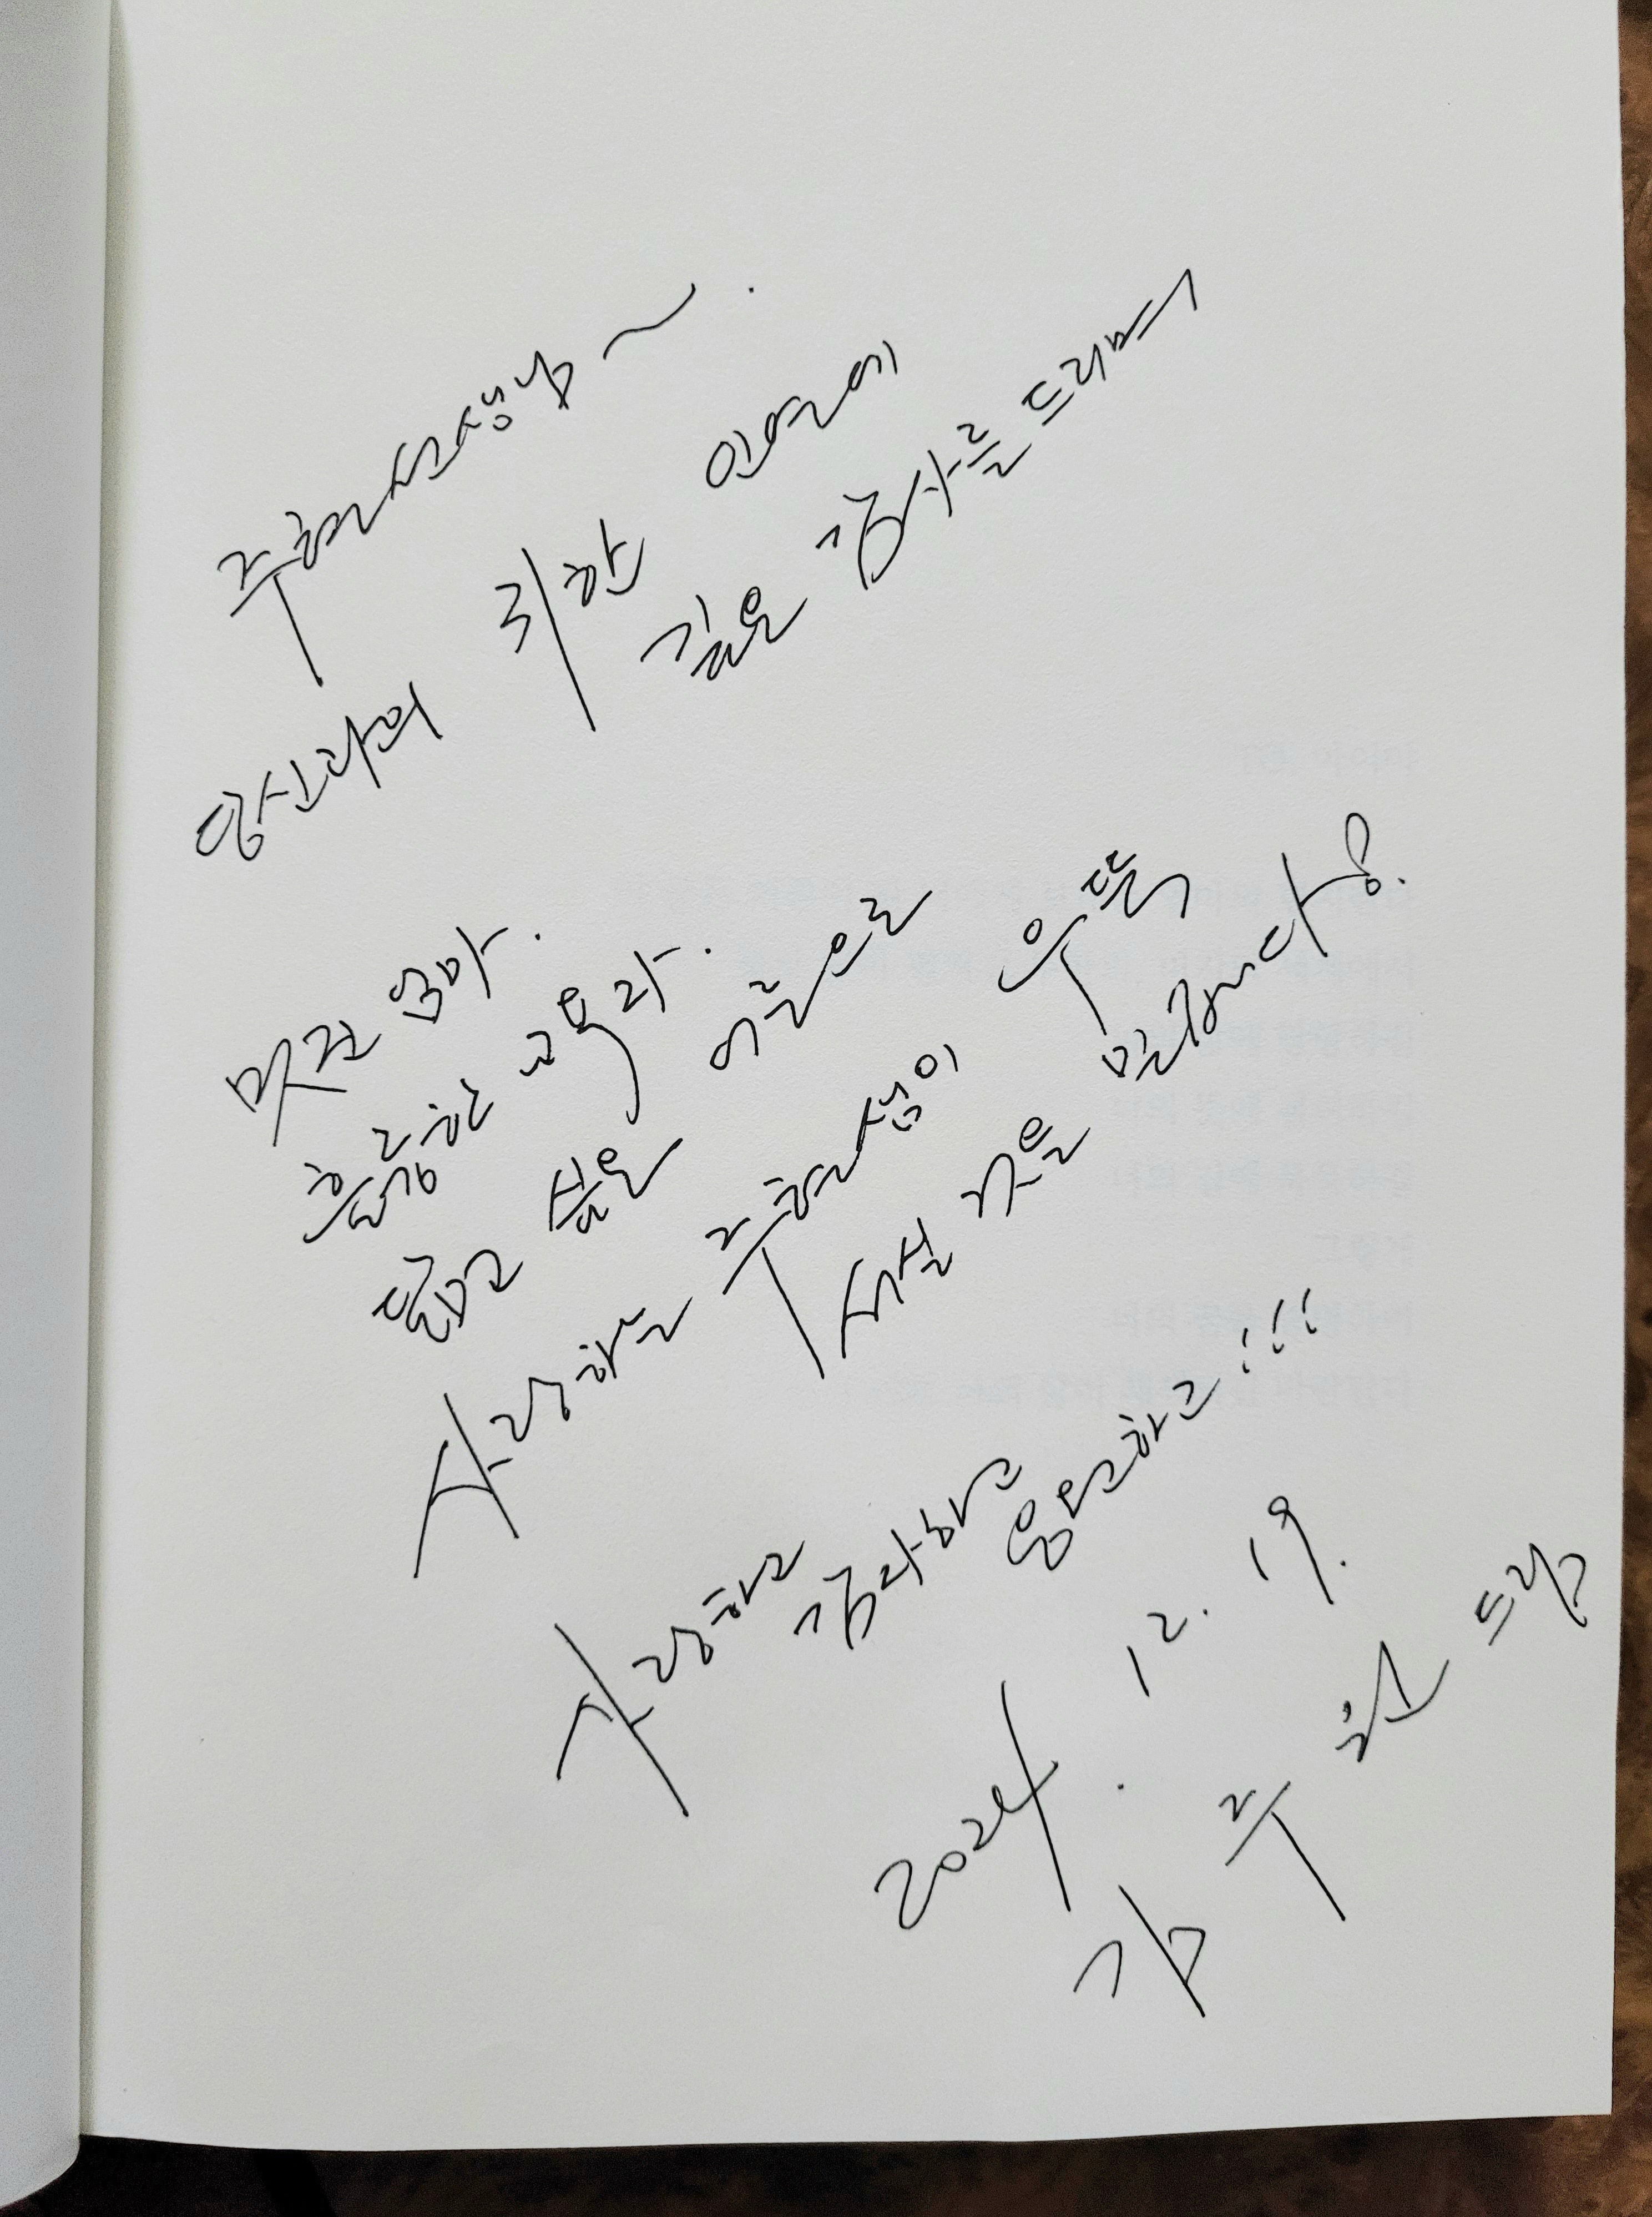 주현선생님~.
당신과의 귀한 인연에
깊은 감사를 드리며
멋진 엄마.
훌륭한 교육자.
품고 싶은 이름으로
사랑하는 주현샘이
우뚝
서실 것을 믿습니다.
사랑하고
감사하고
응원하고!!!
2024. 12. 19.
김주헌 드림